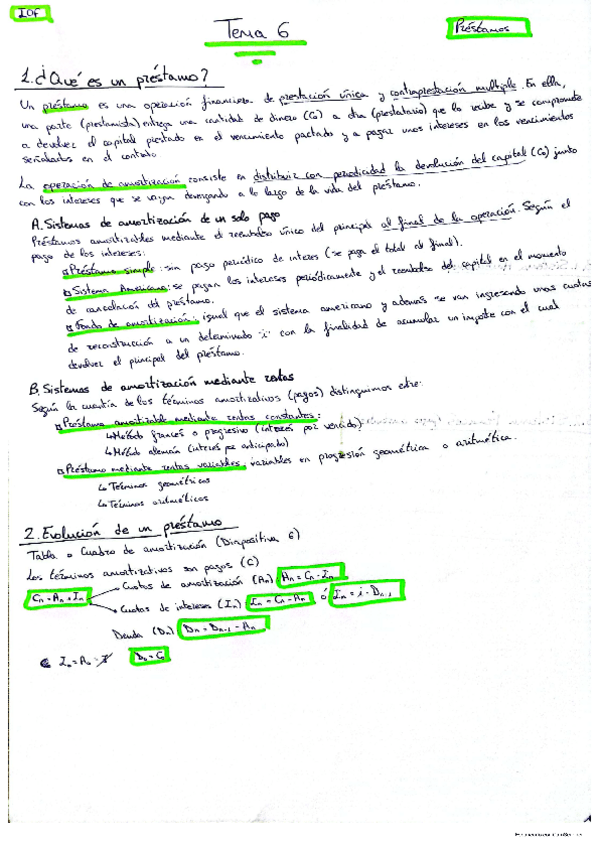 IOF
Tema 6
Préstamos
1. ¿Qué es un préstamo?
Un préstamo es una operación financiera de prestación única y contraprestación multiple. En ella,
una parte (prestamista) entrega una cantidad de dinero (C₀) a otra (prestatario) que lo recibe y se compromete
a devolver el capital prestado en el vencimiento pactado y a pagar unos intereses en los vencimientos
señalados en el contrato.
La operación de amortización consiste en distribuir con periodicidad la devolución del capital (C₀) junto
con los intereses que se vayan devengando a lo largo de la vida del préstamo.
A. Sistemas de amortización de un solo pago
Préstamos amortizables mediante el reembolso único del principal al final de la operación. Según el
pago de los intereses:
Préstamo simple: sin pago periódico de interes (se paga el total al final).
Sistema Americano: se pagan los intereses periódicamente y el reembolso del capital en el momento
de cancelación del préstamo.
Fondo de amortización: igual que el sistema americano y además se van ingresando unas cuotas
de reconstrucción a un determinado "i" con la finalidad de acumular un importe con el cual
devolver el principal del préstamo.
B. Sistemas de amortización mediante rentas
Según la cuantía de los términos amortizativos (pagos) distinguimos entre:
Préstamo amortizable mediante rentas constantes:
↳ Método francés o progresivo (interés por vencido)
↳ Método alemán (interés por anticipado)
Préstamo mediante rentas variables, variables en progresión geométrica o aritmética.
↳ Términos geométricos
↳ Términos aritméticos
2. Evolución de un préstamo
Tabla o Cuadro de amortización (Diapositiva 6)
Los términos amortizativos son pagos (C)
Cuotas de amortización (Aₙ) Aₙ = Cₙ - Iₙ
Cₙ = Aₙ + Iₙ
Cuotas de intereses (Iₙ) Iₙ = Cₙ - Aₙ ó Iₙ = i · Dₙ₋₁
Deuda (Dₙ) Dₙ = Dₙ₋₁ - Aₙ
I₀ = A₀ = D₀ = C₀